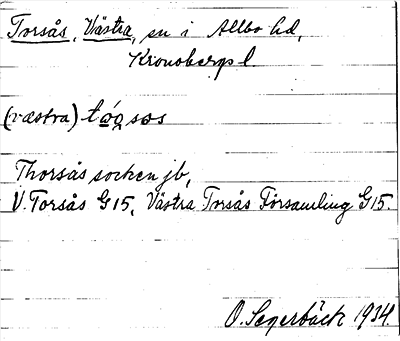 Torsås, Västra, sn i Allbo hd,
Kronobergs l.
(västra) tọ́ɡsɷs
Thorsås socken jb,
V. Torsås G15, Västra Torsås Församling G15.
O. Segerbäck 1934.